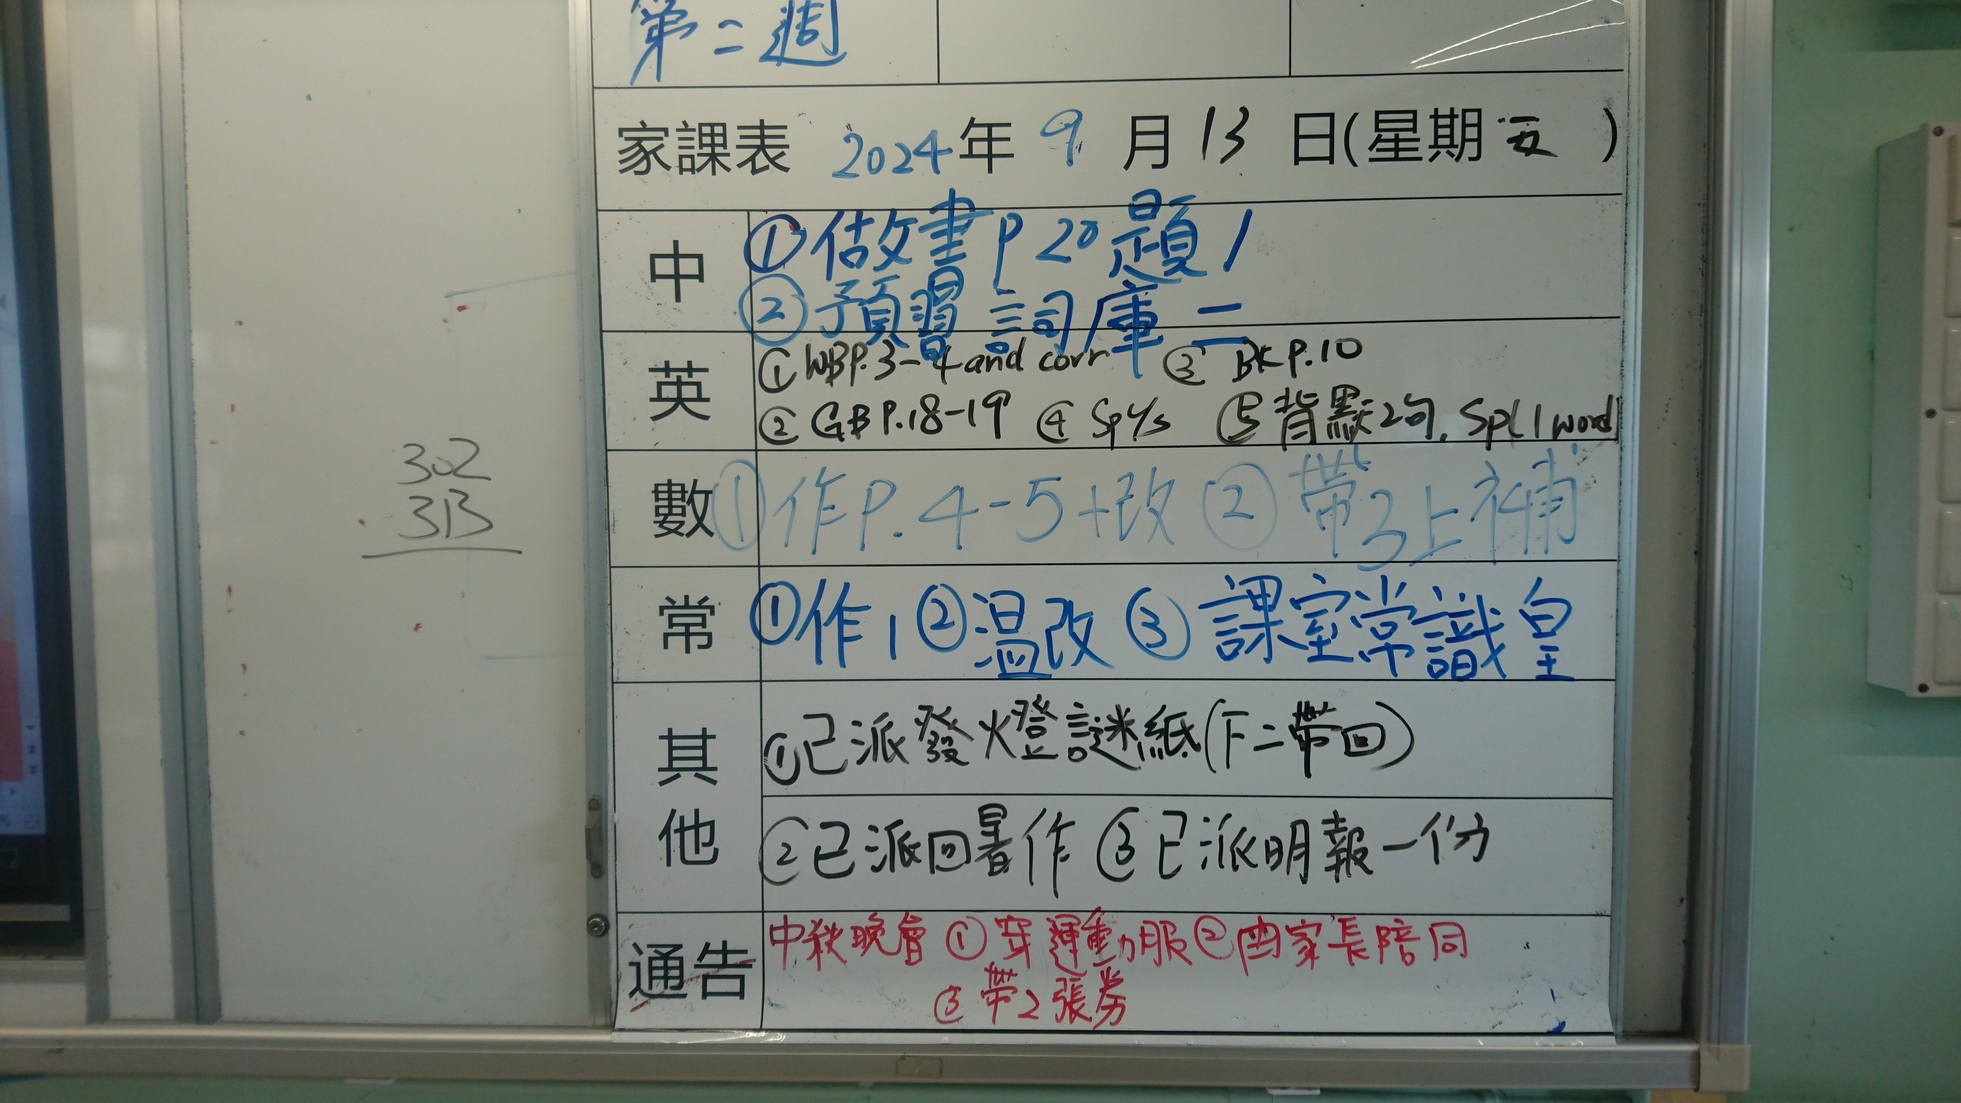 第二週
家課表 2024年 9 月 13 日(星期 五 )
中 ①做書P20題1
②預習詞庫二
英 ①WBP.3-4 and corr ③ BKP.10
②GBP.18-19 ④ Sp4s ⑤背默2句, Spl 1 word
數 ①作P.4-5+改 ②帶3上補
常 ①作1 ②温改 ③課室常識皇
其他 ①已派發火燈謎紙(下二帶回)
②已派回暑作 ③已派明報一份
通告 中秋晚會 ①穿運動服②由家長陪同
③帶2張券
302
313